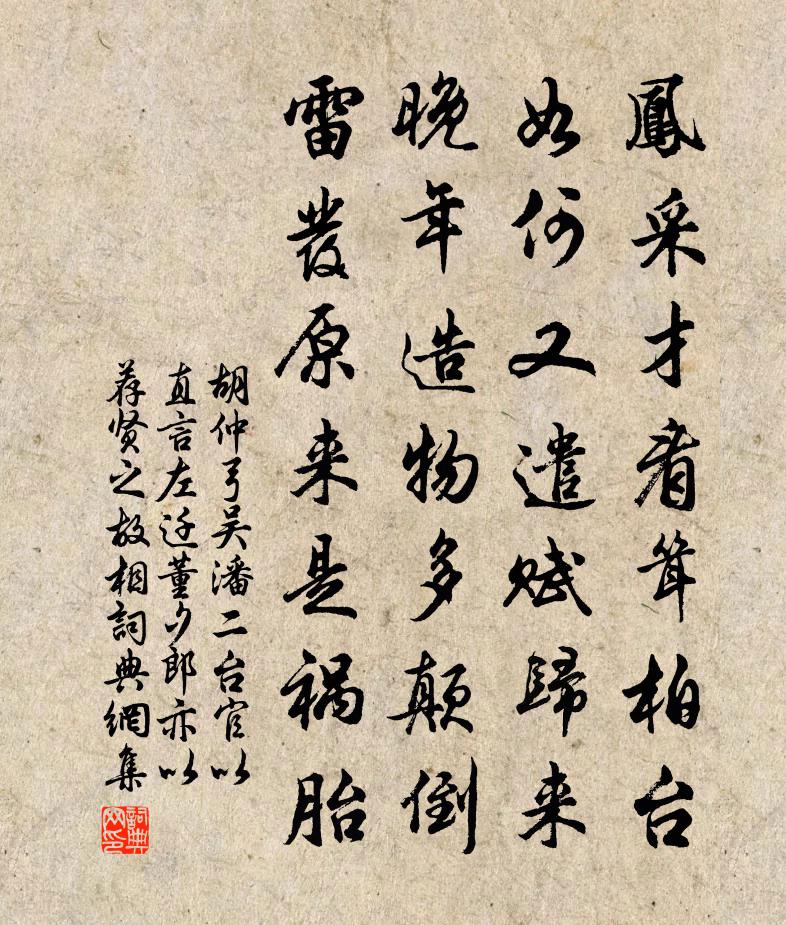 鳳采才看耸柏台
如何又遣赋歸来
晚年造物多颠倒
雷發原来是禍胎
胡仲弓吴潘二台官以
直言左迁董夕郎亦以
荐贤之故相詞典網集
詞典
网印